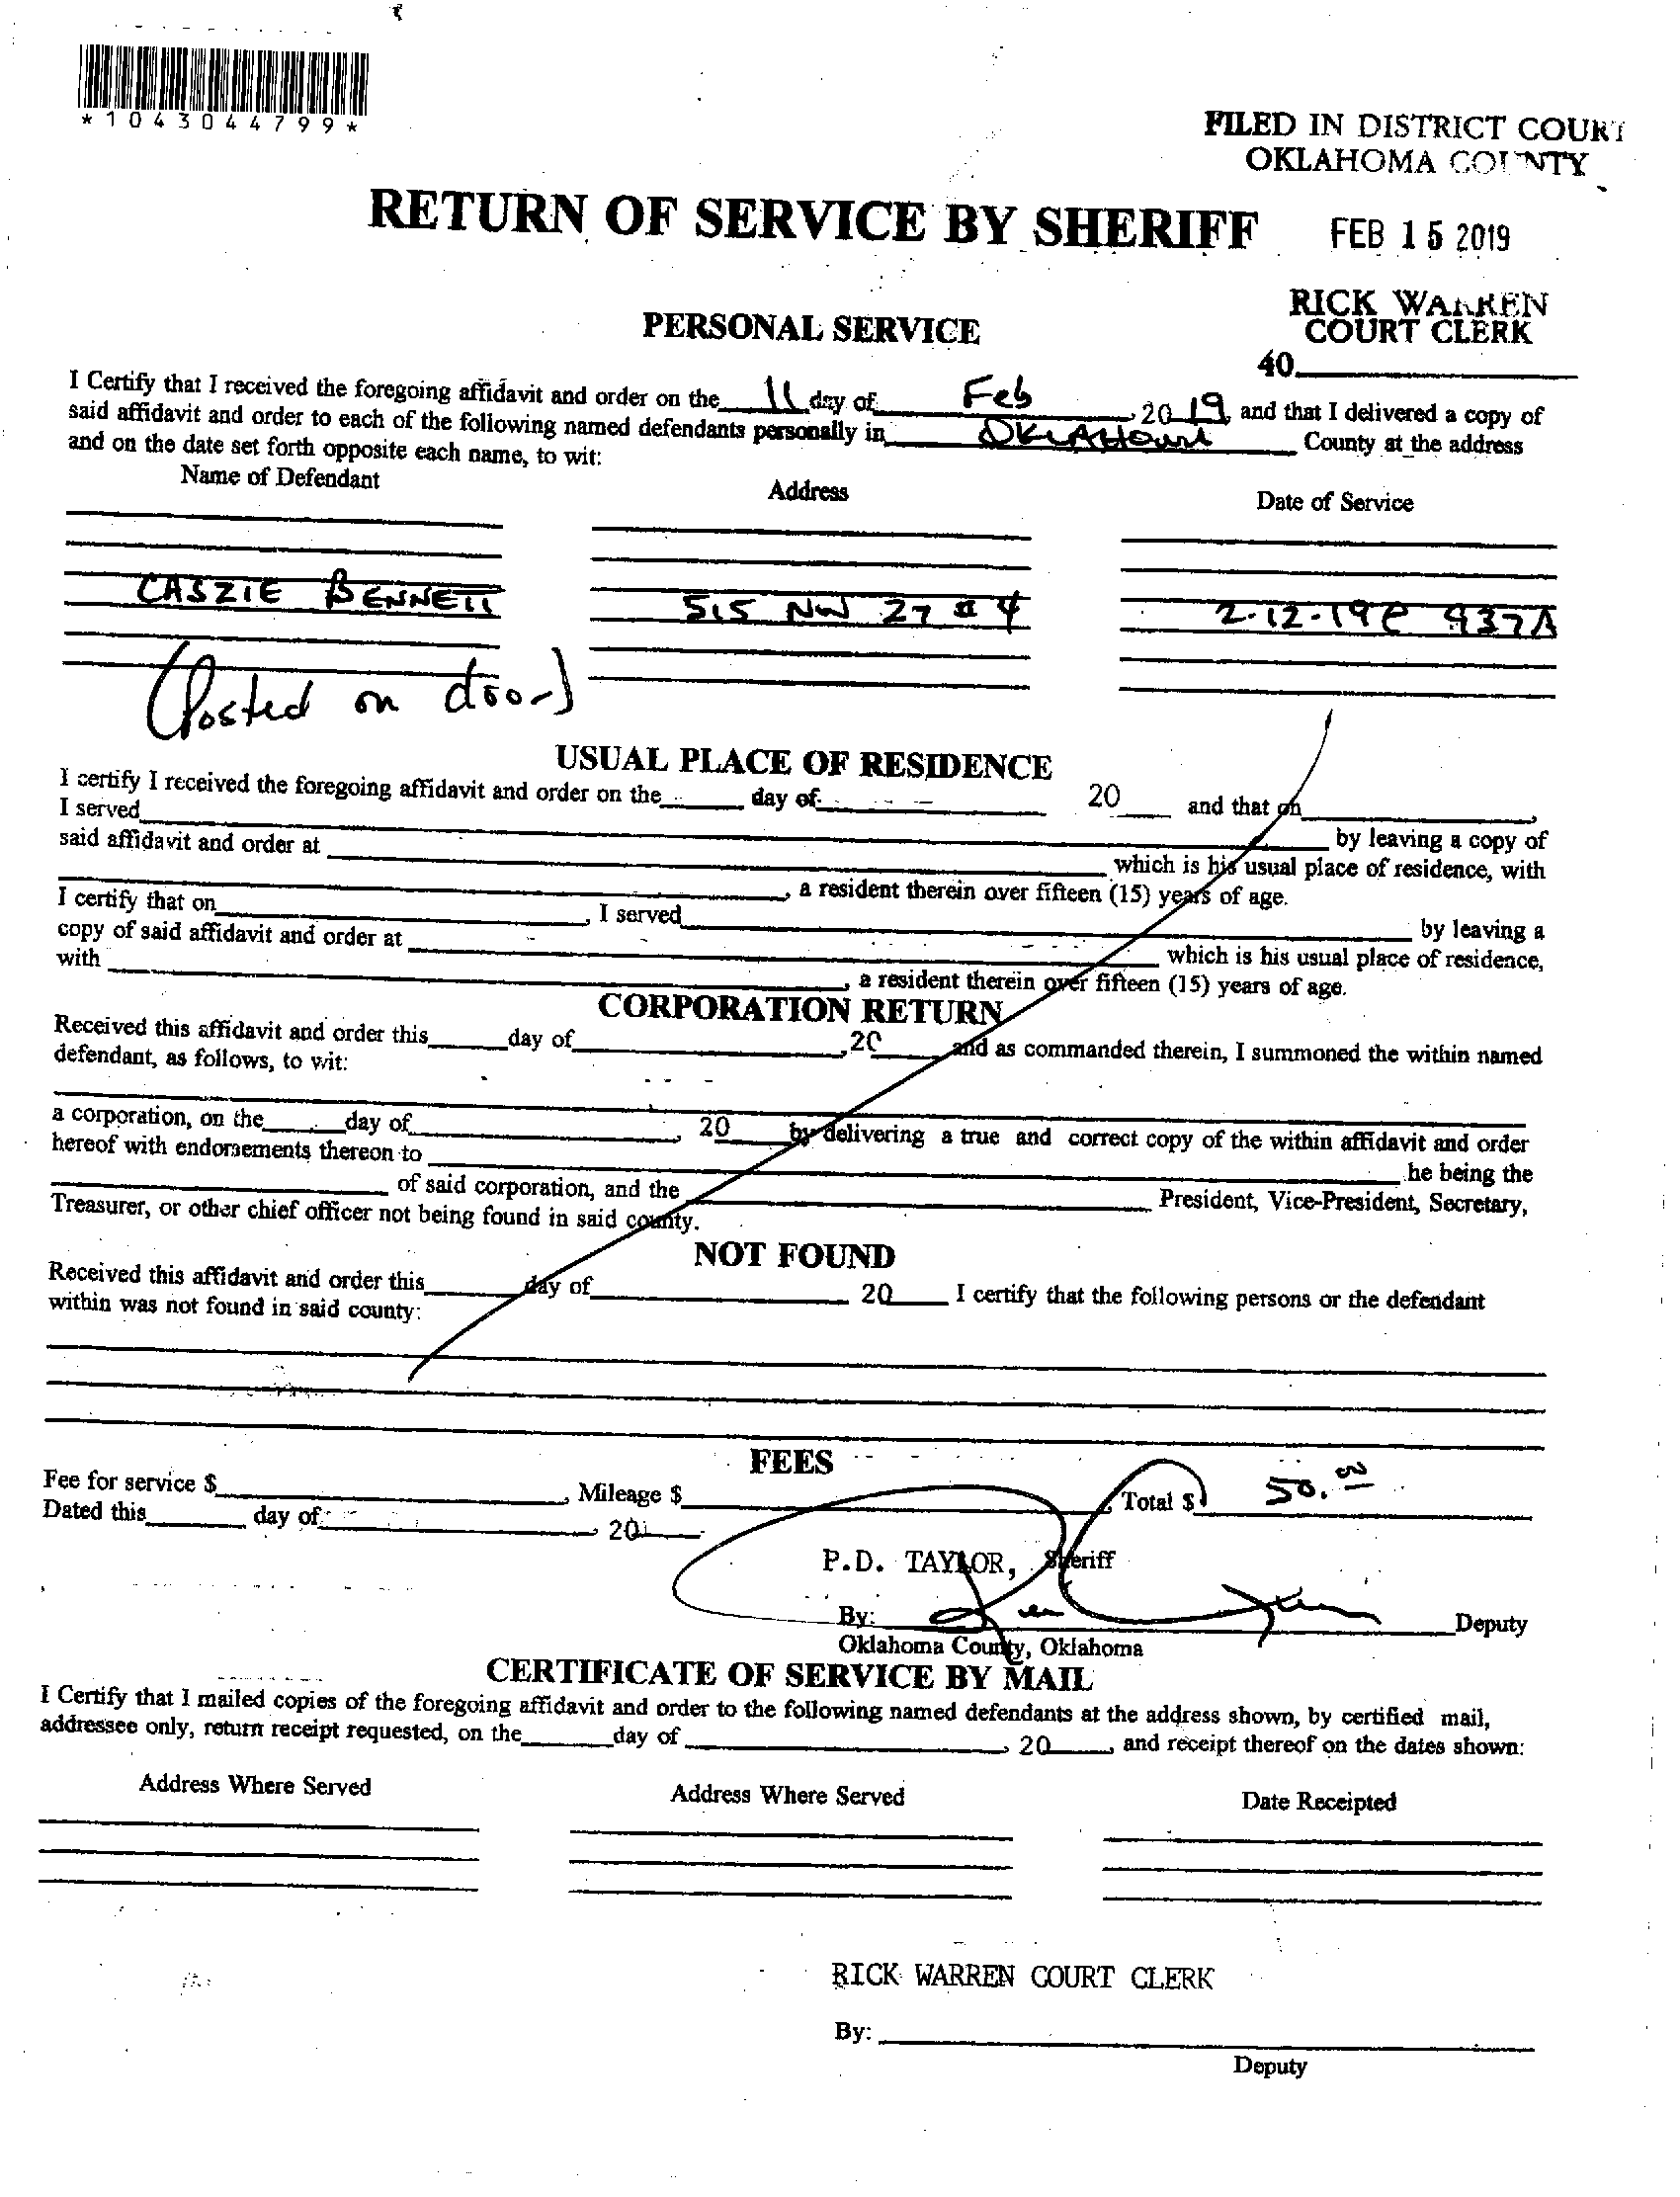 *1043044799*
FILED IN DISTRICT COURT
OKLAHOMA COUNTY
RETURN OF SERVICE BY SHERIFF
FEB 15 2019
RICK WARREN
COURT CLERK
40
PERSONAL SERVICE
I Certify that I received the foregoing affidavit and order on the 11 day of Feb, 2019, and that I delivered a copy of
said affidavit and order to each of the following named defendants personally in OKLAHOMA County at the address
and on the date set forth opposite each name, to wit:
Name of Defendant Address Date of Service
CASZIE BENNETT 515 NW 27 # 4 2-12-19 @ 937A
(Posted on door)
USUAL PLACE OF RESIDENCE
I certify I received the foregoing affidavit and order on the day of 20 and that on ,
I served by leaving a copy of
said affidavit and order at which is his usual place of residence, with
, a resident therein over fifteen (15) years of age.
I certify that on , I served by leaving a
copy of said affidavit and order at which is his usual place of residence,
with , a resident therein over fifteen (15) years of age.
CORPORATION RETURN
Received this affidavit and order this day of , 20 and as commanded therein, I summoned the within named
defendant, as follows, to wit:
a corporation, on the day of , 20 by delivering a true and correct copy of the within affidavit and order
hereof with endorsements thereon to he being the
of said corporation, and the President, Vice-President, Secretary,
Treasurer, or other chief officer not being found in said county.
NOT FOUND
Received this affidavit and order this day of 20 I certify that the following persons or the defendant
within was not found in said county:
FEES
Fee for service $ , Mileage $ , Total $ 50.00
Dated this day of , 20
P.D. TAYLOR, Sheriff
By: Deputy
Oklahoma County, Oklahoma
CERTIFICATE OF SERVICE BY MAIL
I Certify that I mailed copies of the foregoing affidavit and order to the following named defendants at the address shown, by certified mail,
addressee only, return receipt requested, on the day of , 20 , and receipt thereof on the dates shown:
Address Where Served Address Where Served Date Receipted
RICK WARREN COURT CLERK
By:
Deputy